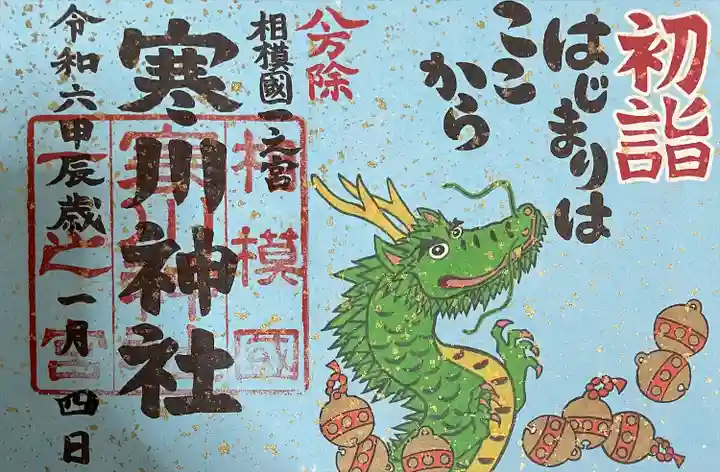 初詣
はじまりは
ここ
から
八方除
相模國一之宮
寒川神社
令和六甲辰歳 一月 四日
相模國
寒川神社
一之宮